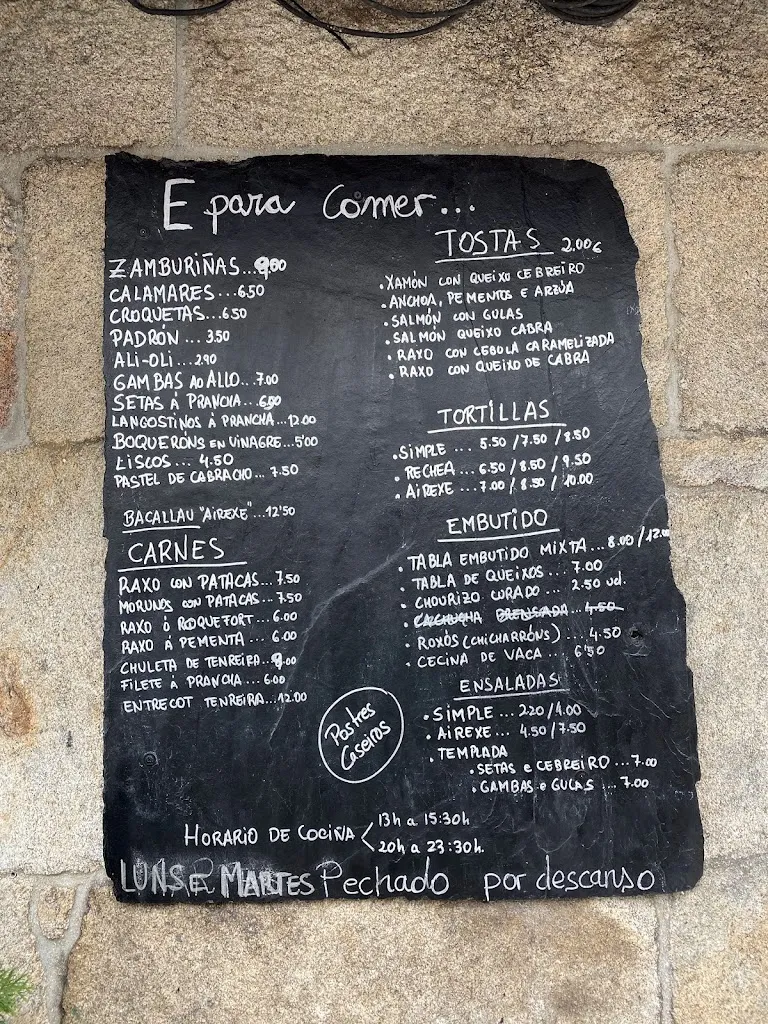 E para Comer...
ZAMBURIÑAS...9,00
CALAMARES...6.50
CROQUETAS...6.50
PADRÓN...3.50
ALI-OLI...2.90
GAMBAS AO ALLO...7.00
SETAS Á PRANCHA...6.90
LANGOSTINOS Á PRANCHA...12.00
BOQUERÓNS EN VINAGRE...5'00
LISCOS...4.50
PASTEL DE CABRACHO...7.50
BACALLAU "AIREXE"...12'50
CARNES
RAXO CON PATACAS...7.50
MORUNOS CON PATACAS...7.50
RAXO Ó ROQUEFORT...6.00
RAXO Á PEMENTA...6.00
CHULETA DE TENREIRA...9.00
FILETE Á PRANCHA...6.00
ENTRECOT TENREIRA...12.00
TOSTAS 2.00€
.XAMÓN CON QUEIXO CEBREIRO
.ANCHOA, PEMENTOS E ARZÚA
.SALMÓN CON GULAS
.SALMÓN QUEIXO CABRA
.RAXO CON CEBOLA CARAMELIZADA
.RAXO CON QUEIXO DE CABRA
TORTILLAS
.SIMPLE...5.50/7.50/8.50
.RECHEA...6.50/8.50/9.50
.AIREXE...7.00/8.50/10.00
EMBUTIDO
.TABLA EMBUTIDO MIXTA...8.00/12.00
.TABLA DE QUEIXOS...7.00
.CHOURIZO CURADO...2.50 ud.
.CACHUCHA PRENSADA...4.50
.ROXÓS (CHICHARRÓNS)...4.50
.CECINA DE VACA...6'50
ENSALADAS
.SIMPLE...2.20/4.00
.AIREXE...4.50/7.50
.TEMPLADA
.SETAS e CEBREIRO...7.00
.GAMBAS e GULAS...7.00
Postres
Caseiros
HORARIO DE COCIÑA < 13h a 15:30h
20h a 23:30h.
LUNS E MARTES Pechado por descanso